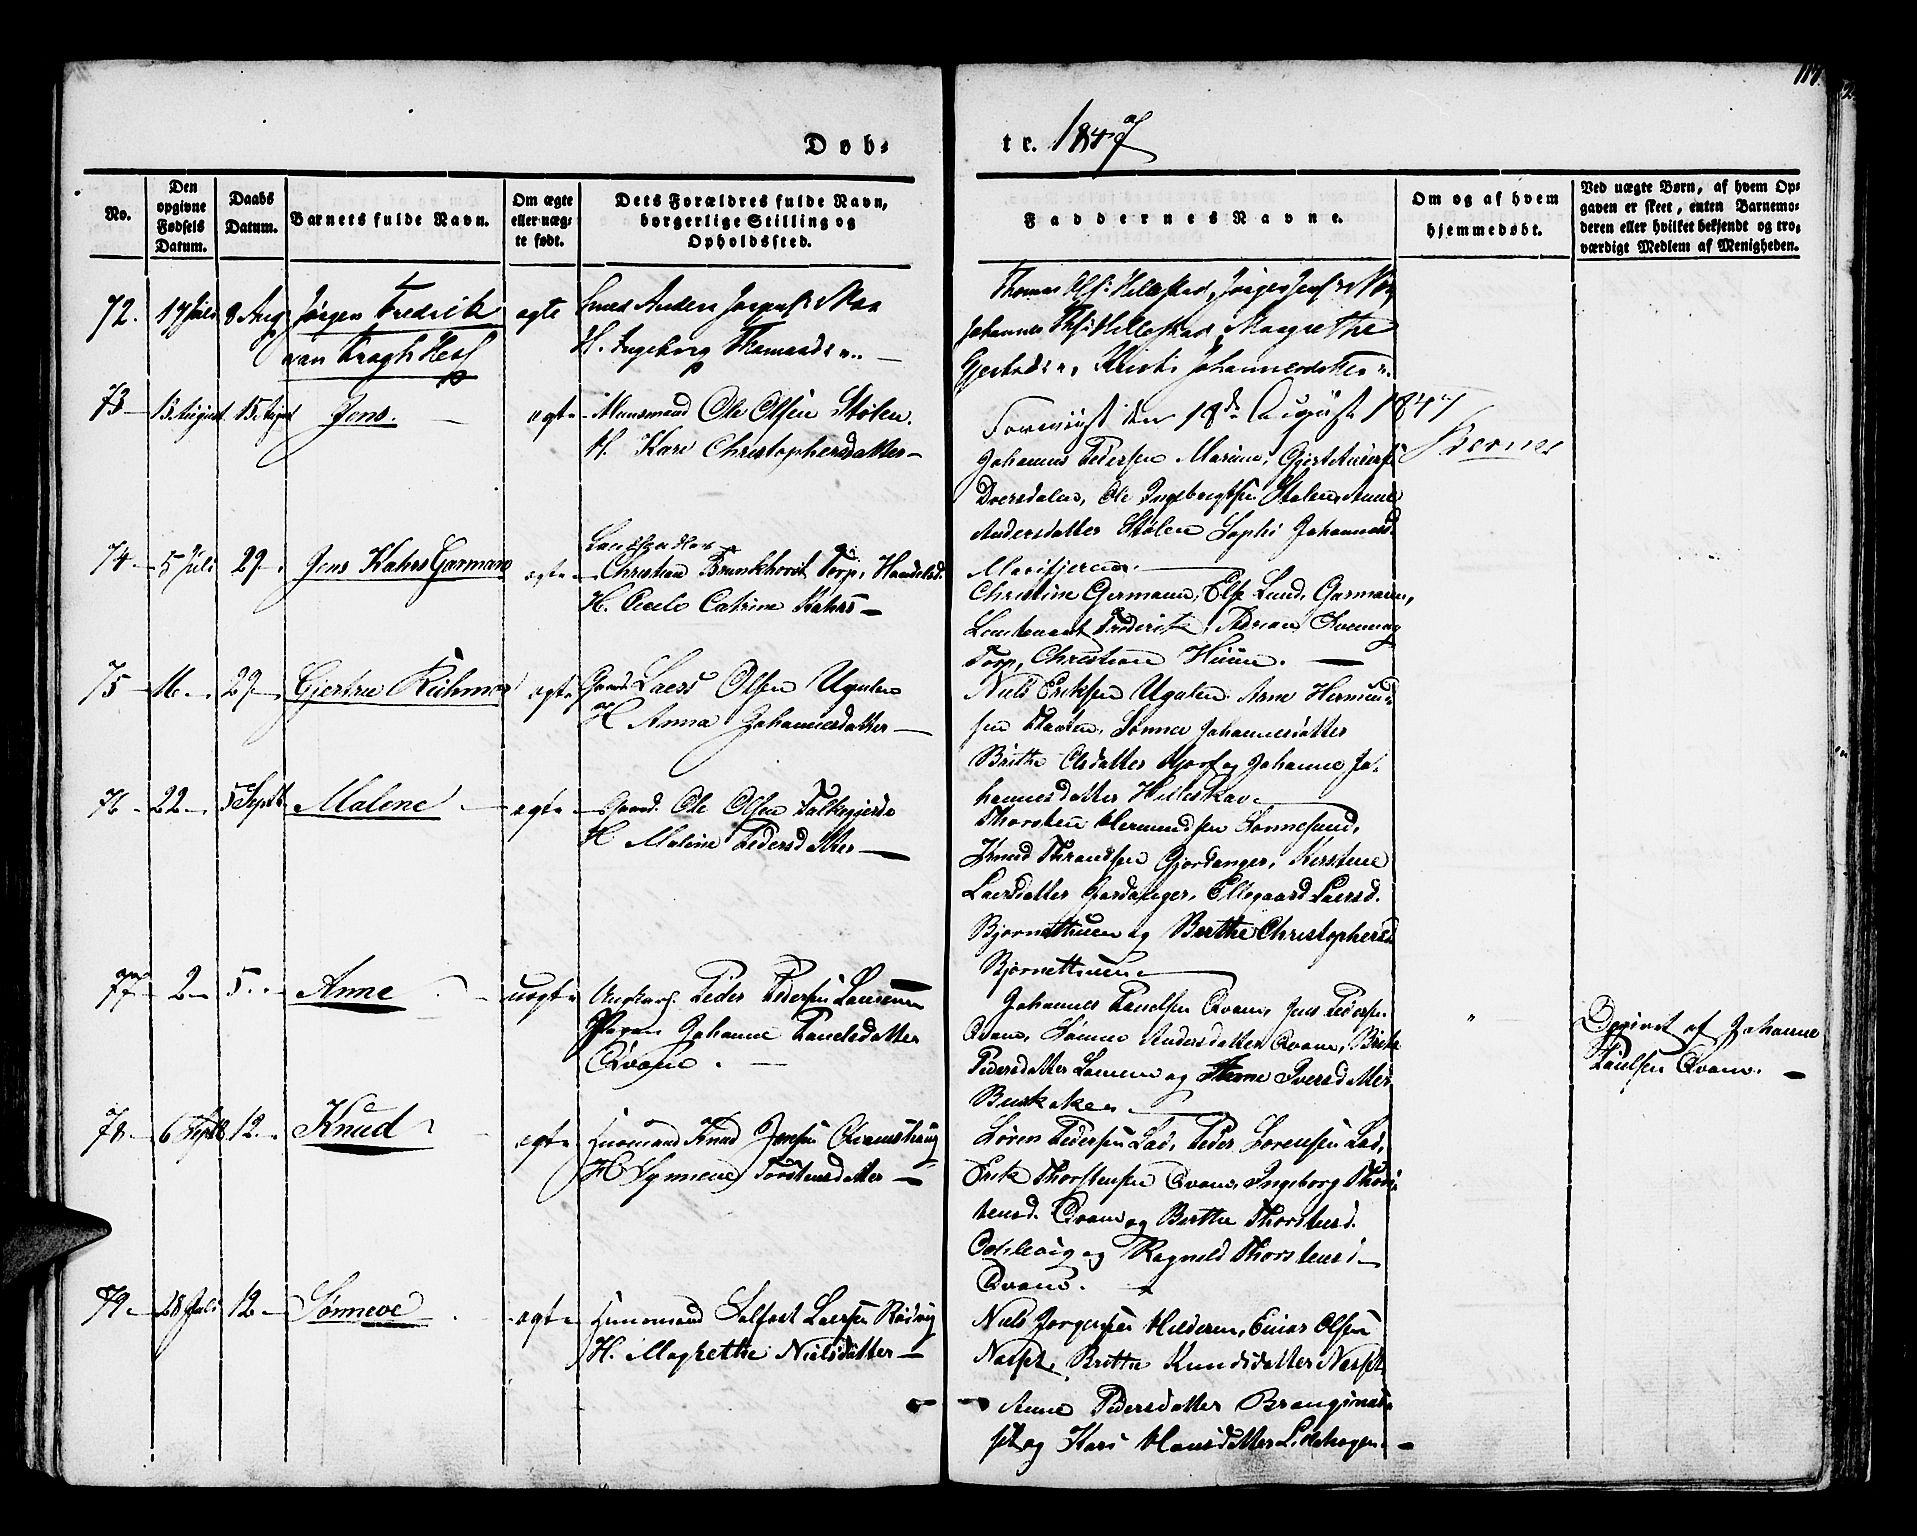 117.
Døb- tr. 1847
No.
Den opgivne Fødsels Datum.
Daabs Datum.
Barnets fulde Navn.
Om ægte eller uæg- te født.
Dets Forældres fulde Navn, borgerlige Stilling og Opholdssted.
Faddernes Navne.
Om og af hvem hjemmedøbt.
Ved uægte Børn, af hvem Op- gaven er skeet, enten Barnemo- deren eller hvilket bekjendt og tro- værdigt Medlem af Menigheden.
72. 17 Juli 8 Aug Jørgen Fredrik ægte Anders Jørgens
van Kragh Hess H. Ingeborg Thomasd
Thomas Ols: Hilleskar, Jørgen Jens
Johannes Hilleskar, Margrethe
Johannesdatter
73 13 August 15 August Jens. egte Huusmand Ole Olsen Stølen.
H. Kari Christophersdatter
Foreviist den 18de August 1847
Johannes Pedersen
Dversdalen, Ole Ingebrigtsen Stølen, Anne
Andersdatter Stølen Sophi Johannesd.
Marifjeren
74 5 Juli 29 Jens Kahrs Garmann egte Landhandler
Christian Brunkhorst Torp,
H. Cecele Catrine Kahrs
Christine Germann, Else Lund, Garmann,
Leutenant Friderik, Adrian, Svennug
Torp, Christian
75 16 29 Gjertrue egte Gaard. Lars Olsen Ugulen
H Anna Johannesdatter
Niels Eriksen Ugulen Arne Hermund-
sen Haaten, Sønnev Johannesdatter
Brithe Olsdatter og Johanne Jo-
hannesdatter Hilleskar
76 22 5 Septb Malene egte Gaard. Ole Olsen Talkeggjerde
H Malene Pedersdatter
Thorsten Hermundsen Sønnesand,
Knud Thrandsen Gjordanger, Kirstine
Larsdatter Gardanger, Ellegaard Larsd.
Bjørnethuen og Berthe Christophersd
Bjørnethuen
77 2 5 Anne uegte Ungkarl. Peder Pedersen Lauemen
Pigen Johanne Paulsdatter
Qvame.
Johannes Paulsen Qvam, Jens Peders
Qvame, Sønnev Andersdatter Qvame, Brite
Pedersdatter og Iversdatter
Opgivet af Johanne
Paulsen Qvam.
78 6 Septb 12 Knud egte Huusmand Knud Jensen
H Synneve Torstensdatter
Søren Pedersen Lad, Peder Sorensen Lad,
Erik Thorstensen Qvame, Ingeborg Thors-
tensd. Qvame og Berthe Thorstensd.
og Ragnild Thorstensd
Qvame.
79 28 Juli 12 Sønneve egte Huusmand Larsen
H. Magrethe Nielsdatter
Niels Jørgensen Hilderen, Einar Olsen
Næsset, Brithe Knudsdatter Næsset
Anne Pedersdatter
og Kari Hansdatter Lidehagen